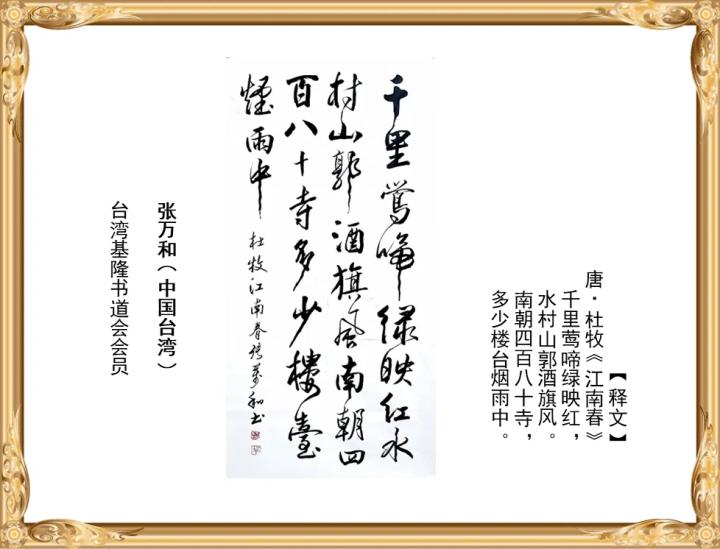 千里鶯啼绿映红水
村山郭酒旗風南朝四
百八十寺多少樓臺
煙雨中 杜牧江南春張萬和书
【释文】
唐·杜牧《江南春》
千里莺啼绿映红，
水村山郭酒旗风。
南朝四百八十寺，
多少楼台烟雨中。
张万和（中国台湾）
台湾基隆书道会会员